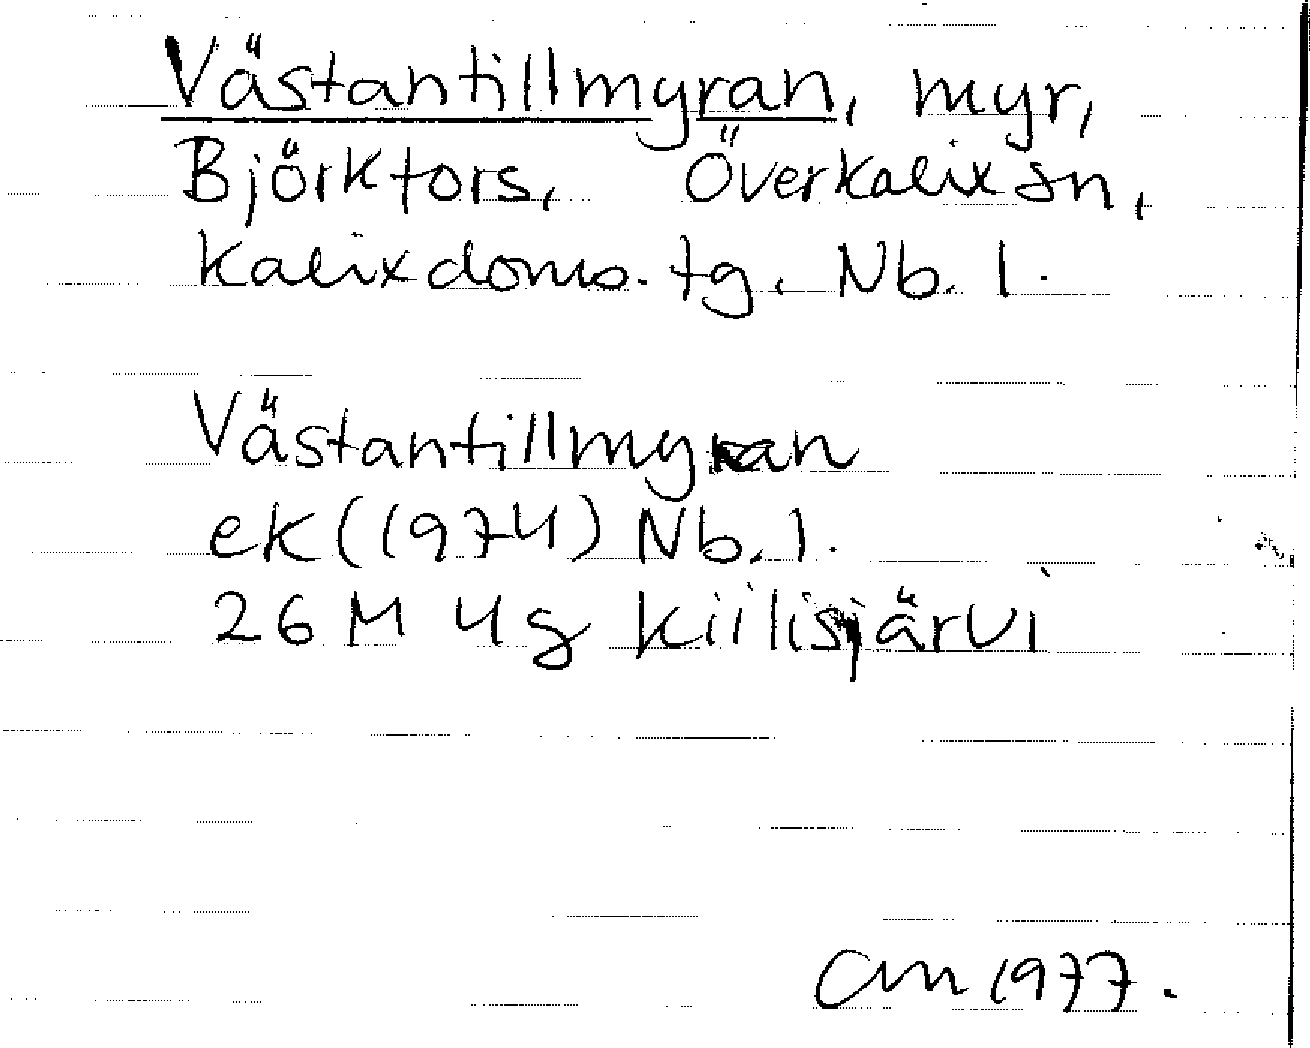 Västantillmyran, myr,
Björkfors, Överkalix sn,
Kalix doms. tg. Nb. l.
Västantillmyran
ek (1974) Nb. l.
26 M 4g Kiilisjärvi
CM 1977.